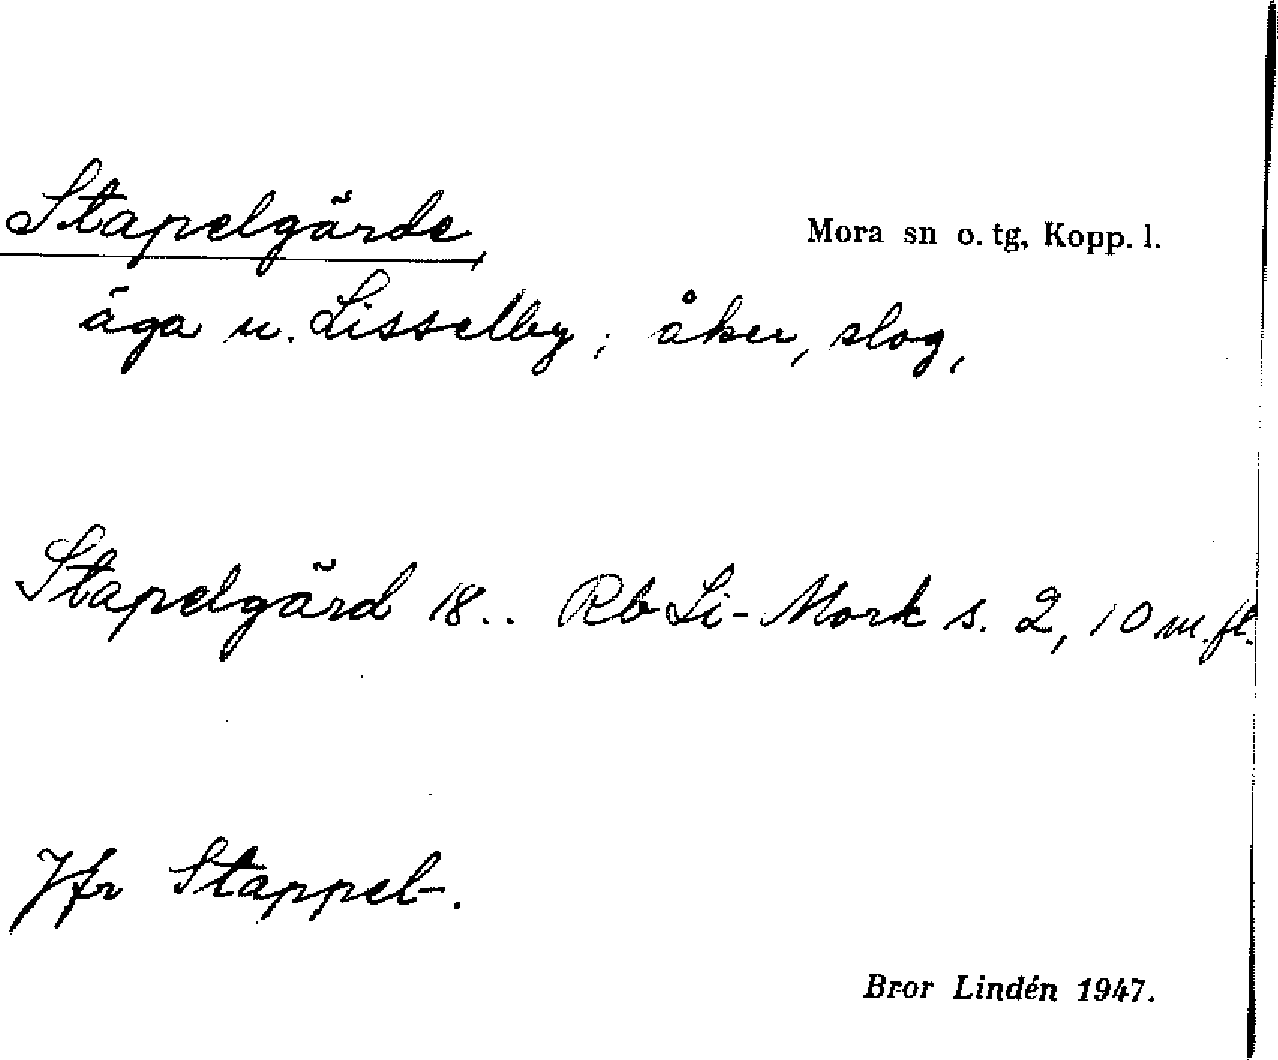 Stapelgärde,
Mora sn o. tg, Kopp. l.
äga u. Lisselby; åker, slog,
Stapelgärd 18.. Rb Li-Mork s. 2, 10 m.fl.
Jfr Stappel-.
Bror Lindén 1947.